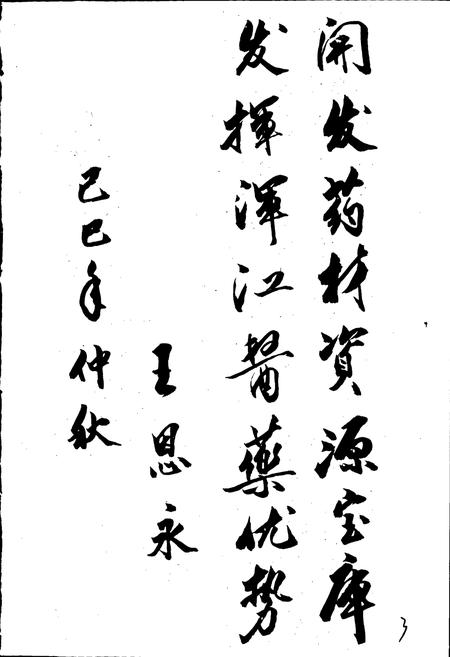 開发药材資源宝庫
发揮渾江醫藥优势
王恩永
己巳年仲秋
3